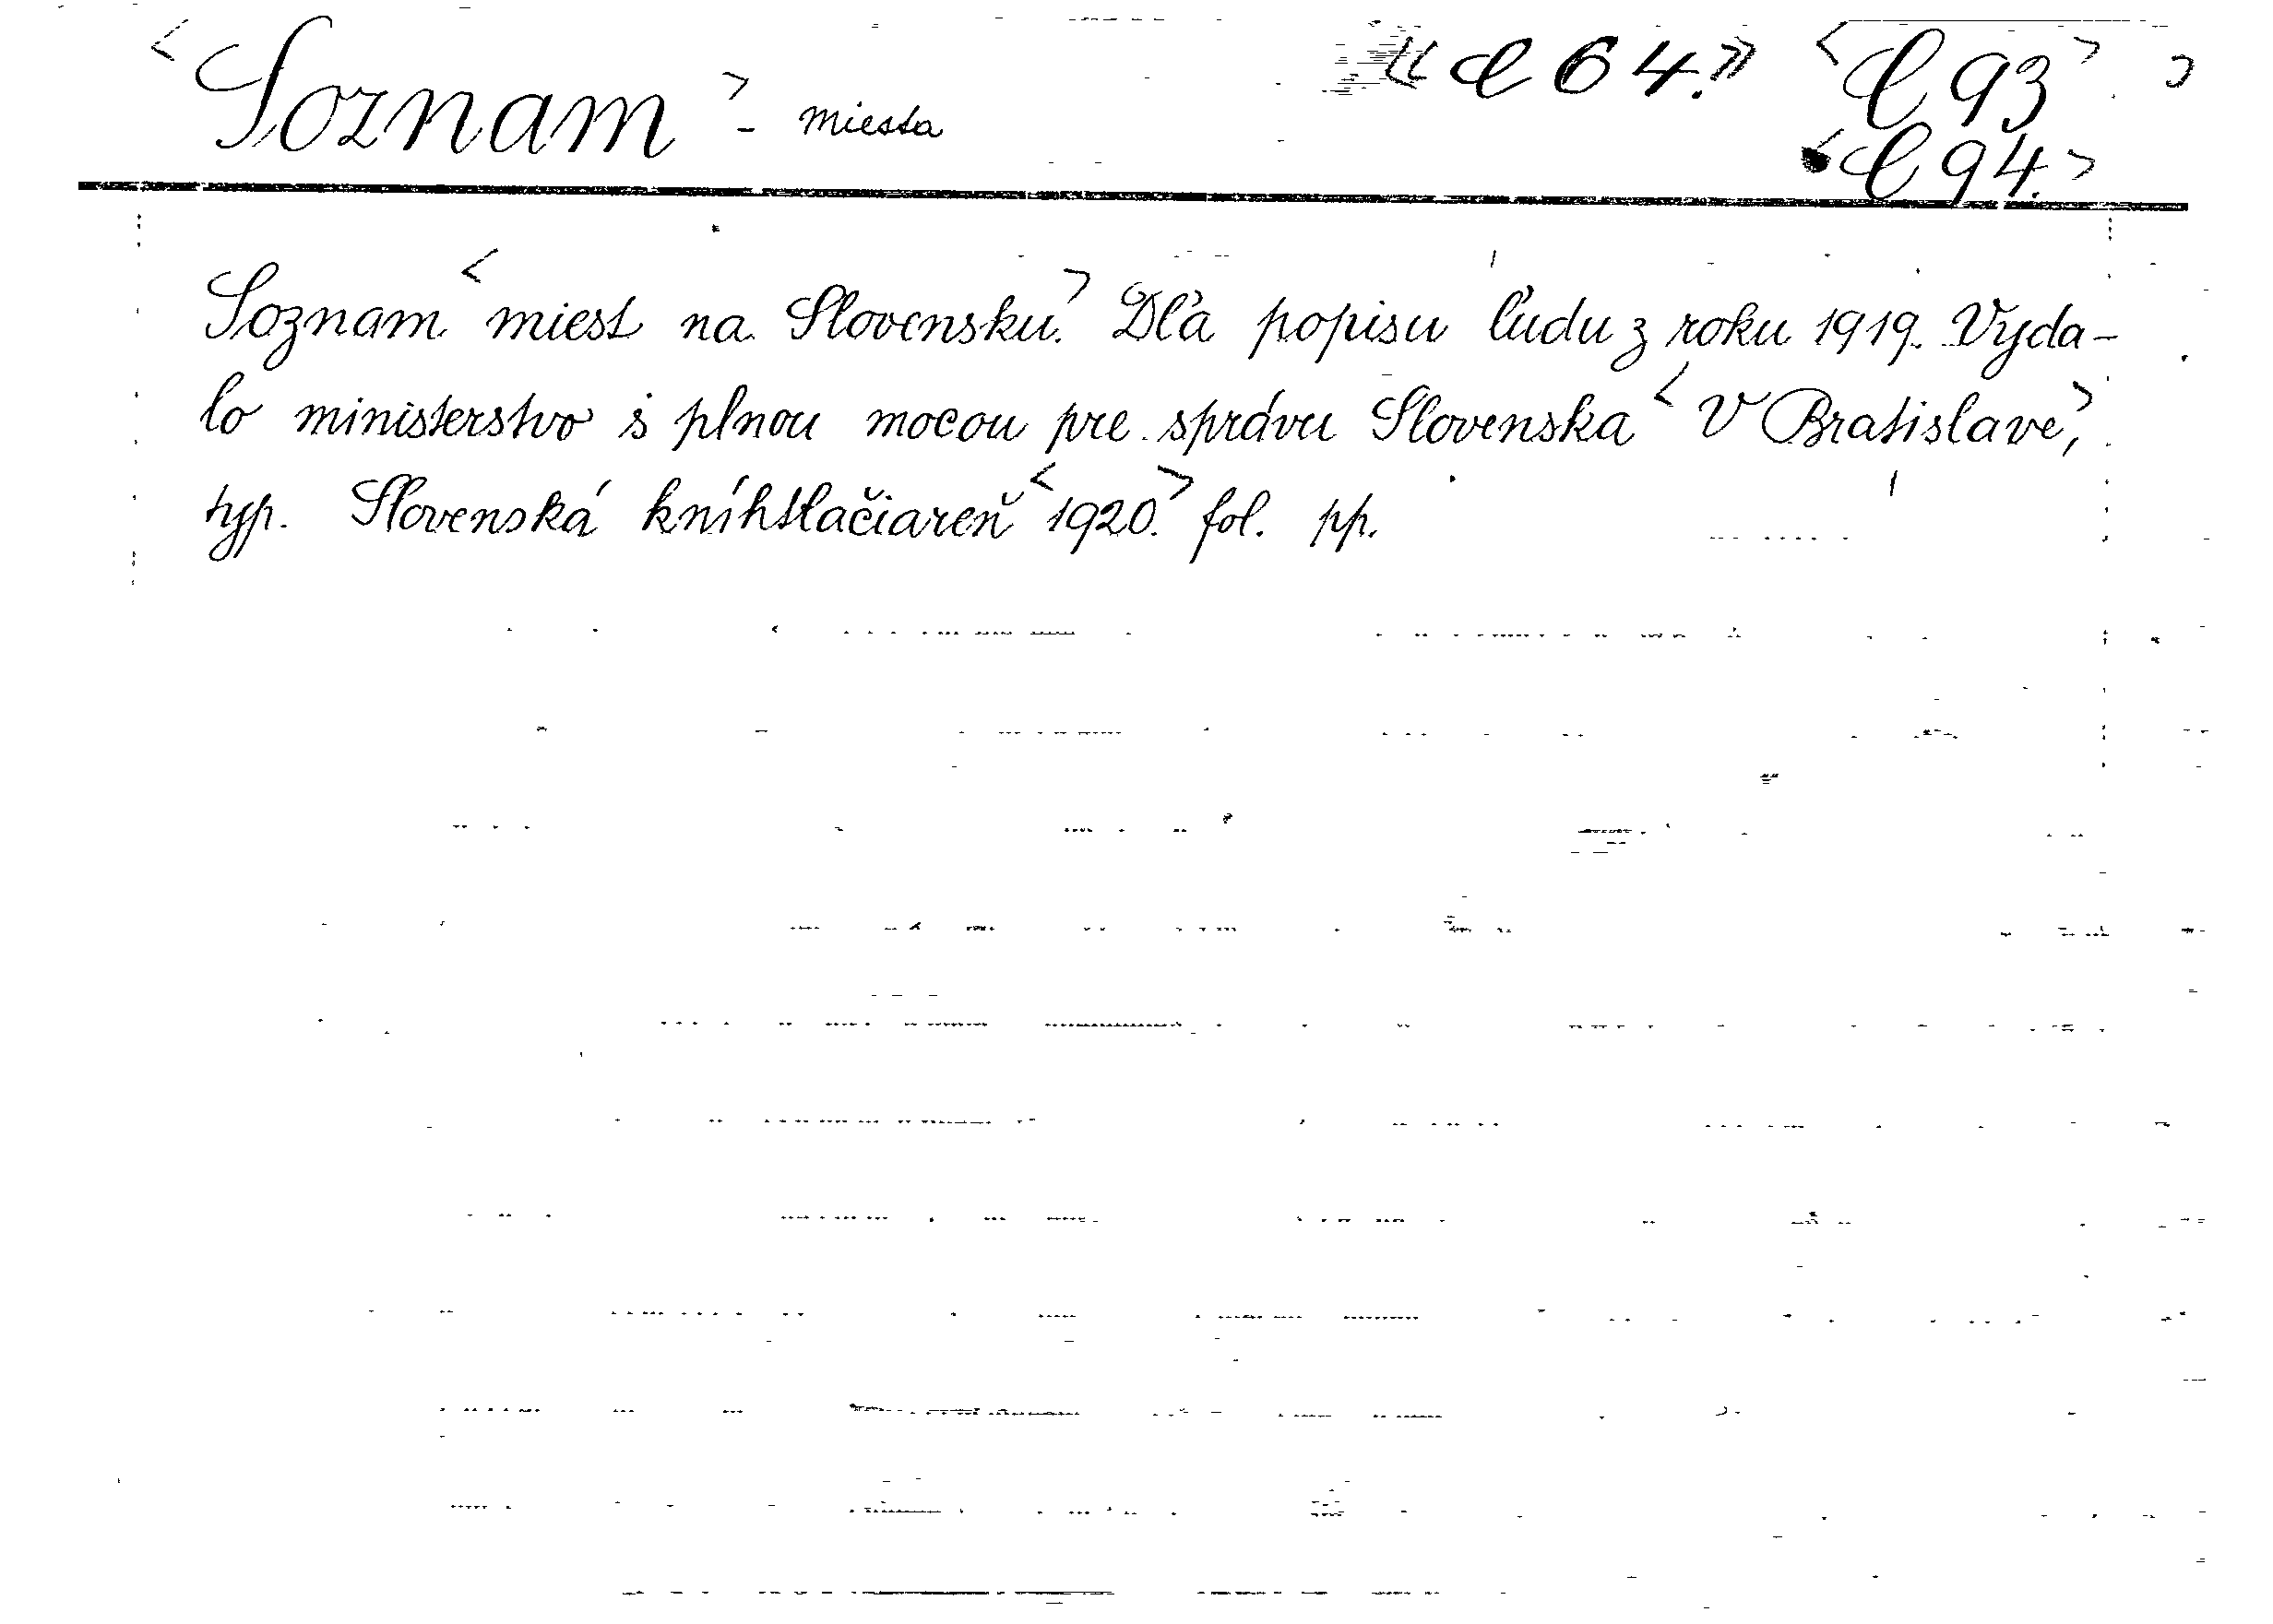 <Soznam> - miesta «C 64.» <C 93>
<C 94.>
Soznam <miest na Slovensku.> Dľa popisu ľudu z roku 1919. Vyda-
lo ministerstvo s plnou mocou pre správu Slovenska <V Bratislave,>
typ. Slovenská kníhtlačiareň <1920.> fol. pp.